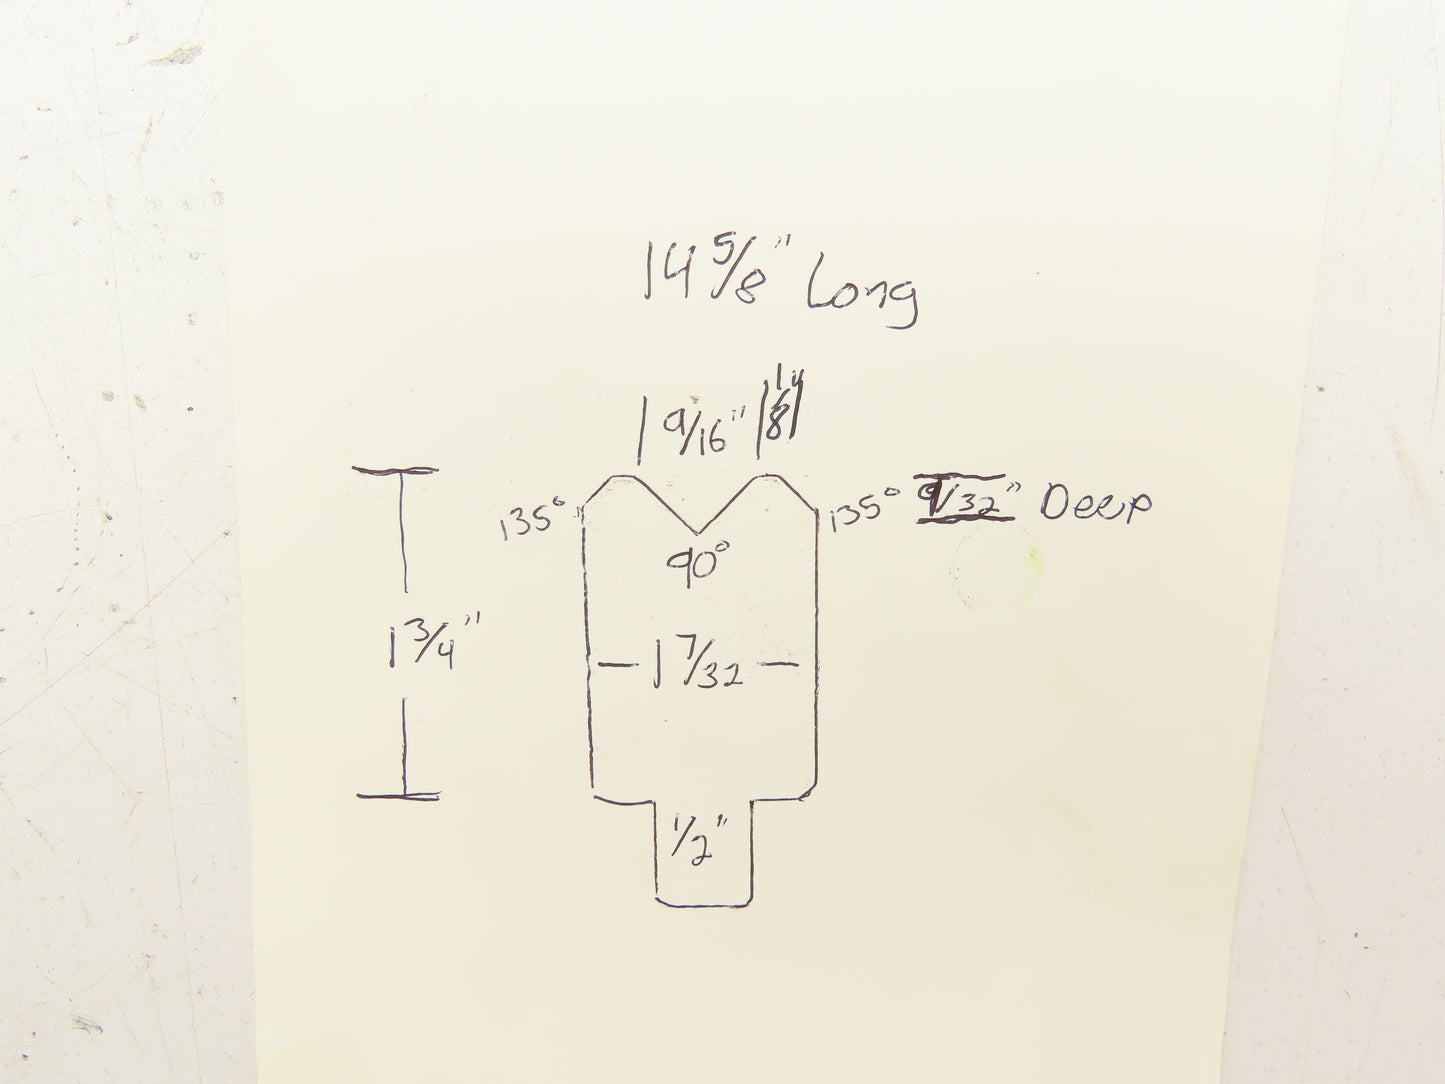 14 5/8" Long
9/16" 1/8"
135° 135° 9/32" Deep
90°
1 3/4"
1 7/32
1/2"